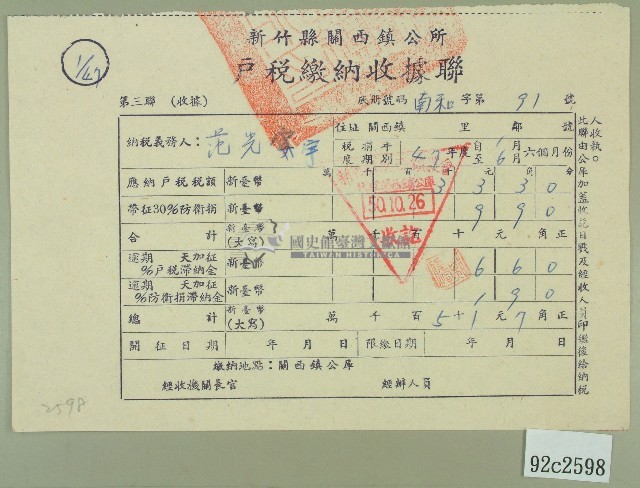 1/47
新竹縣關西鎮公所
戶稅繳納收據聯
第三聯 (收據) 底冊號碼 南和 字第 91 號
納稅義務人: 范光 宇 住址 關西鎮 里 鄰 號
稅捐年度期別 47 年度 自 1 月 至 6 月 六個月份
萬 千 百 十 元 角 分
應納戶稅稅額 新臺幣 3 3 3 0
帶征30%防衛捐 新臺幣 9 9 0
合計 新臺幣(大寫) 萬 千 百 十 元 角 正
逾期 天加征 %戶稅滯納金 新臺幣 6 6 0
逾期 天加征 %防衛捐滯納金 新臺幣 1 9 0
總計 新臺幣(大寫) 萬 千 百 5 十 1 元 7 角 正
開征日期 年 月 日 限繳日期 年 月 日
繳納地點:關西鎮公庫
經收機關長官 經辦人員
此聯由公庫加蓋收訖日戳及經收人員印鑑後給納稅
人收執。
50.10.26
收訖
國史館臺灣文獻館
TAIWAN HISTORICA
2598
92c2598